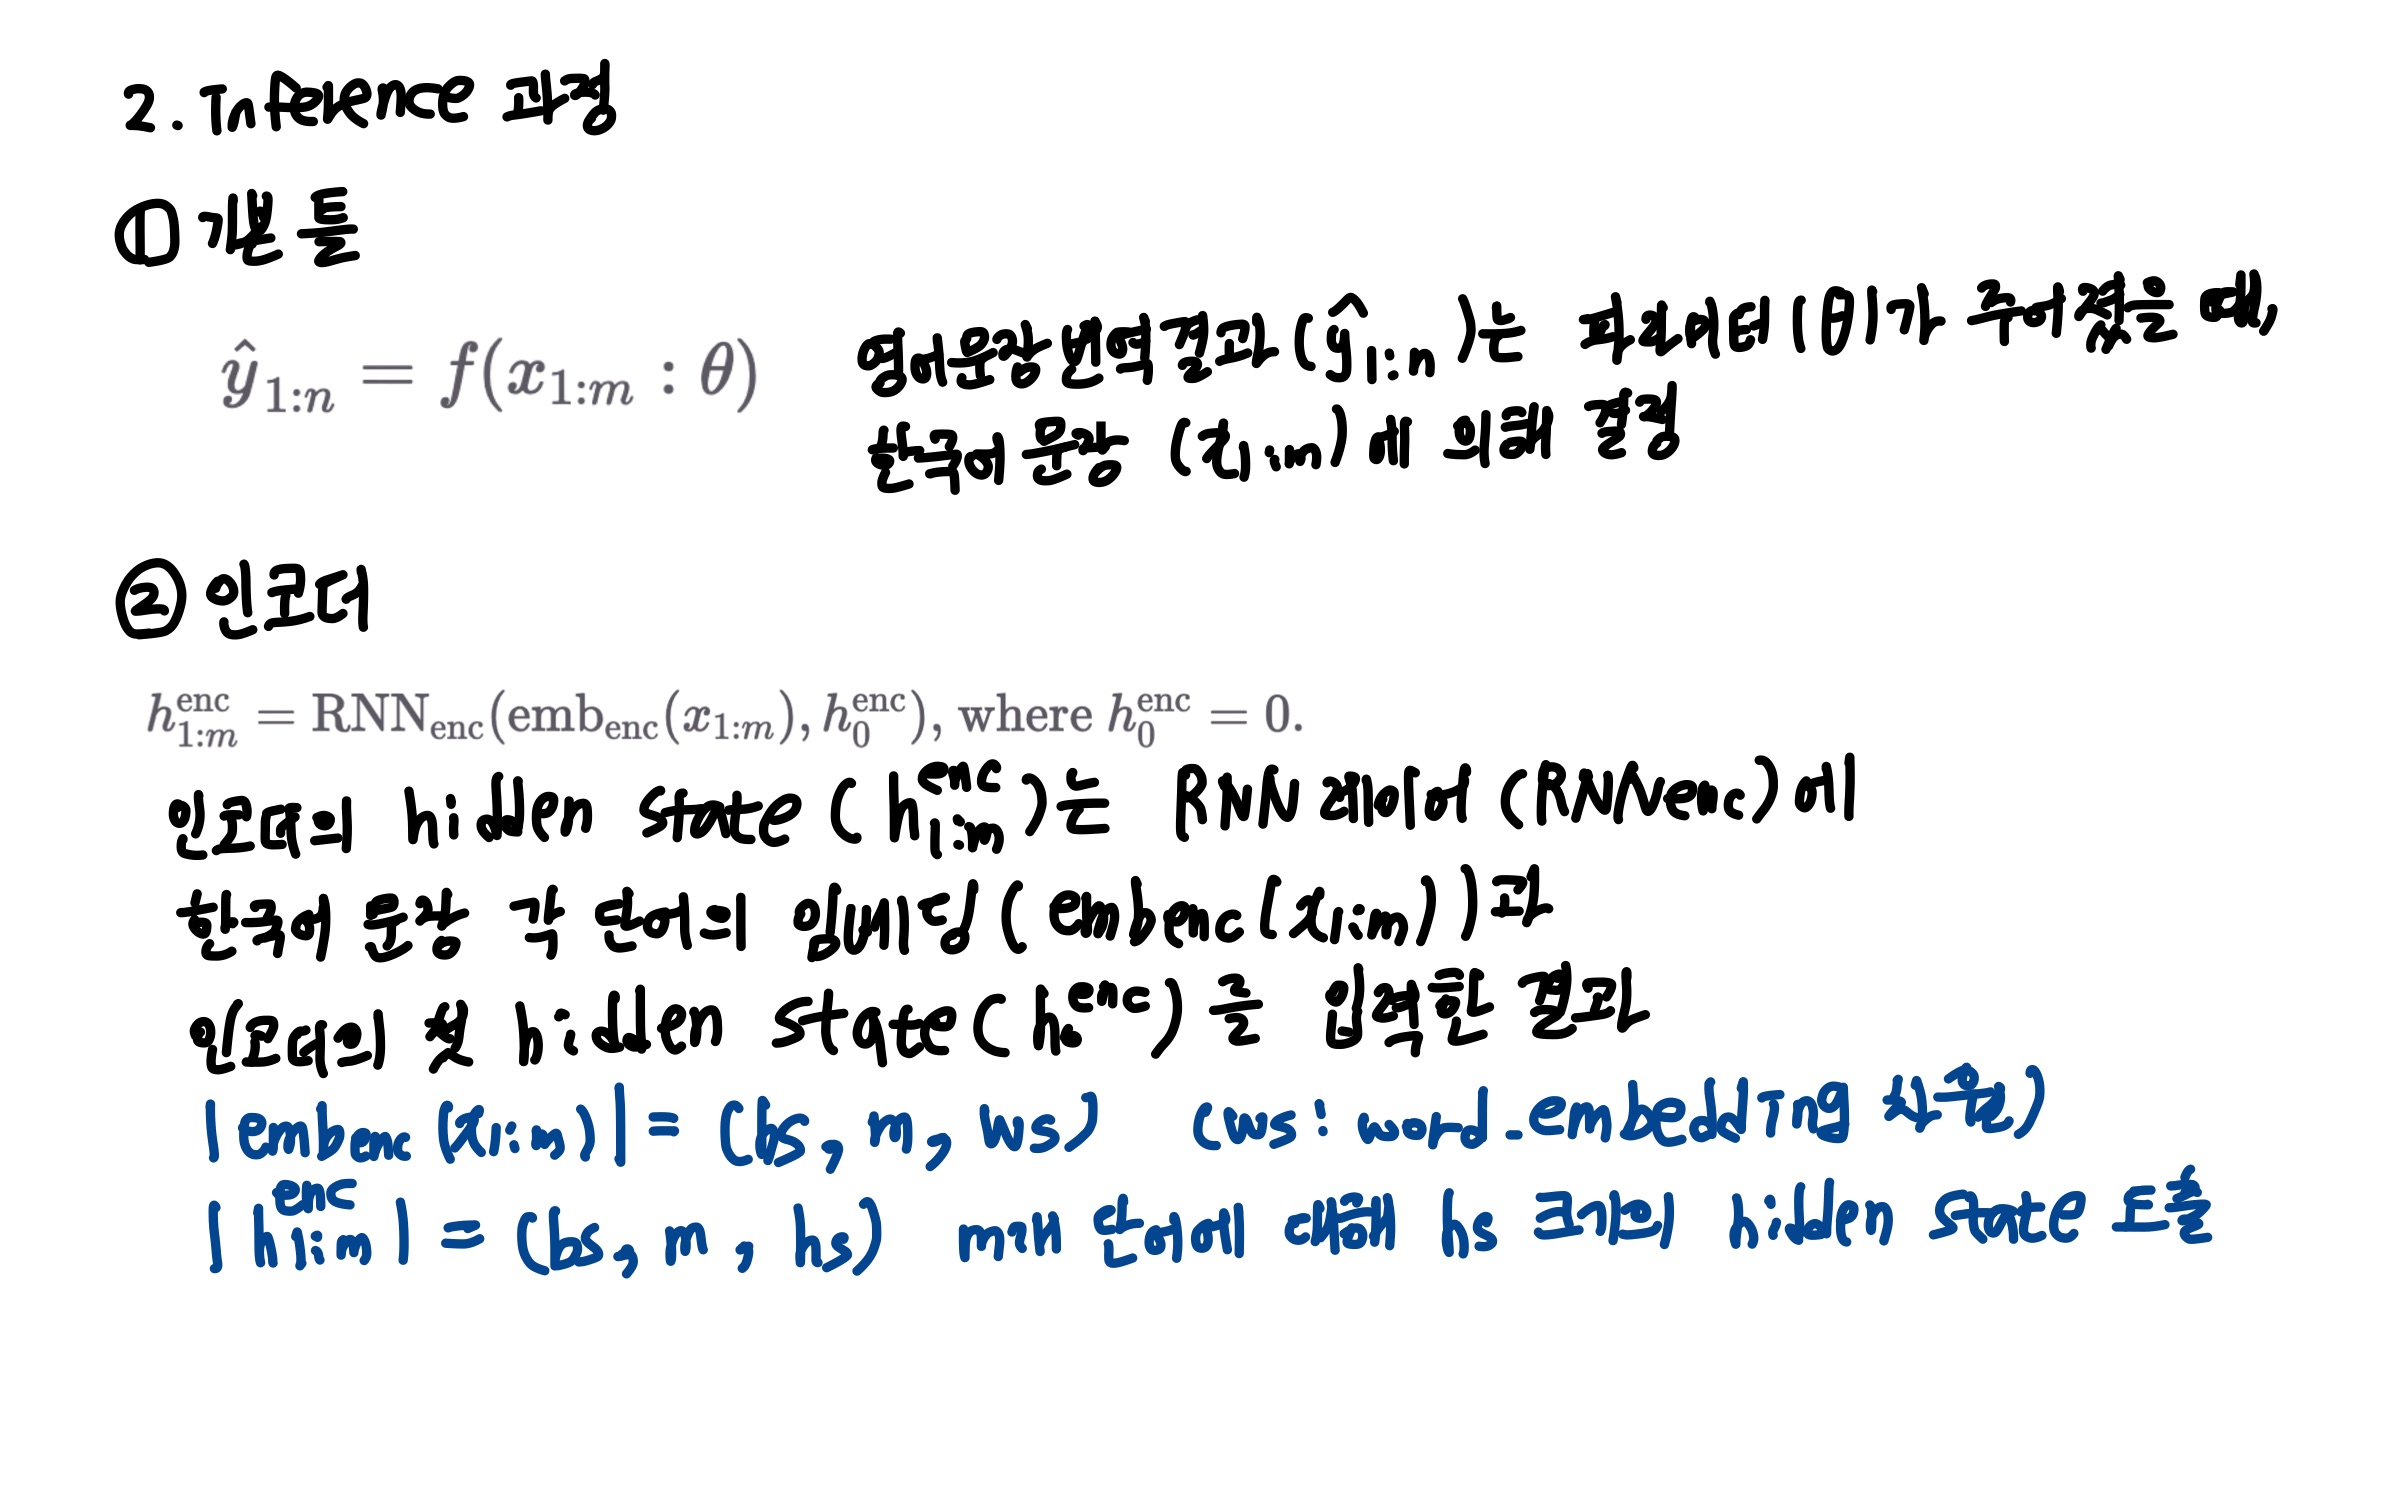 2. Inference 과정
① 기본 틀
ŷ₁:ₙ = f(x₁:ₘ : θ)
영어문장 번역 결과 (ŷ₁:ₙ)는 파라미터(θ)가 주어졌을 때,
한국어 문장 (x₁:ₘ)에 의해 결정
② 인코더
h₁:ₘ^enc = RNN_enc(emb_enc(x₁:ₘ), h₀^enc), where h₀^enc = 0.
인코더의 hidden state (h₁:ₘ^enc)는 RNN 레이어 (RNNenc)에
한국어 문장 각 단어의 임베딩(embenc(x₁:ₘ))과
인코더의 첫 hidden state(h₀^enc)를 입력한 결과
|emb_enc(x₁:ₘ)| = (bs, m, ws) (ws: word_embedding 차원)
|h₁:ₘ^enc| = (bs, m, hs) m개 단어에 대해 hs 크기의 hidden state 도출